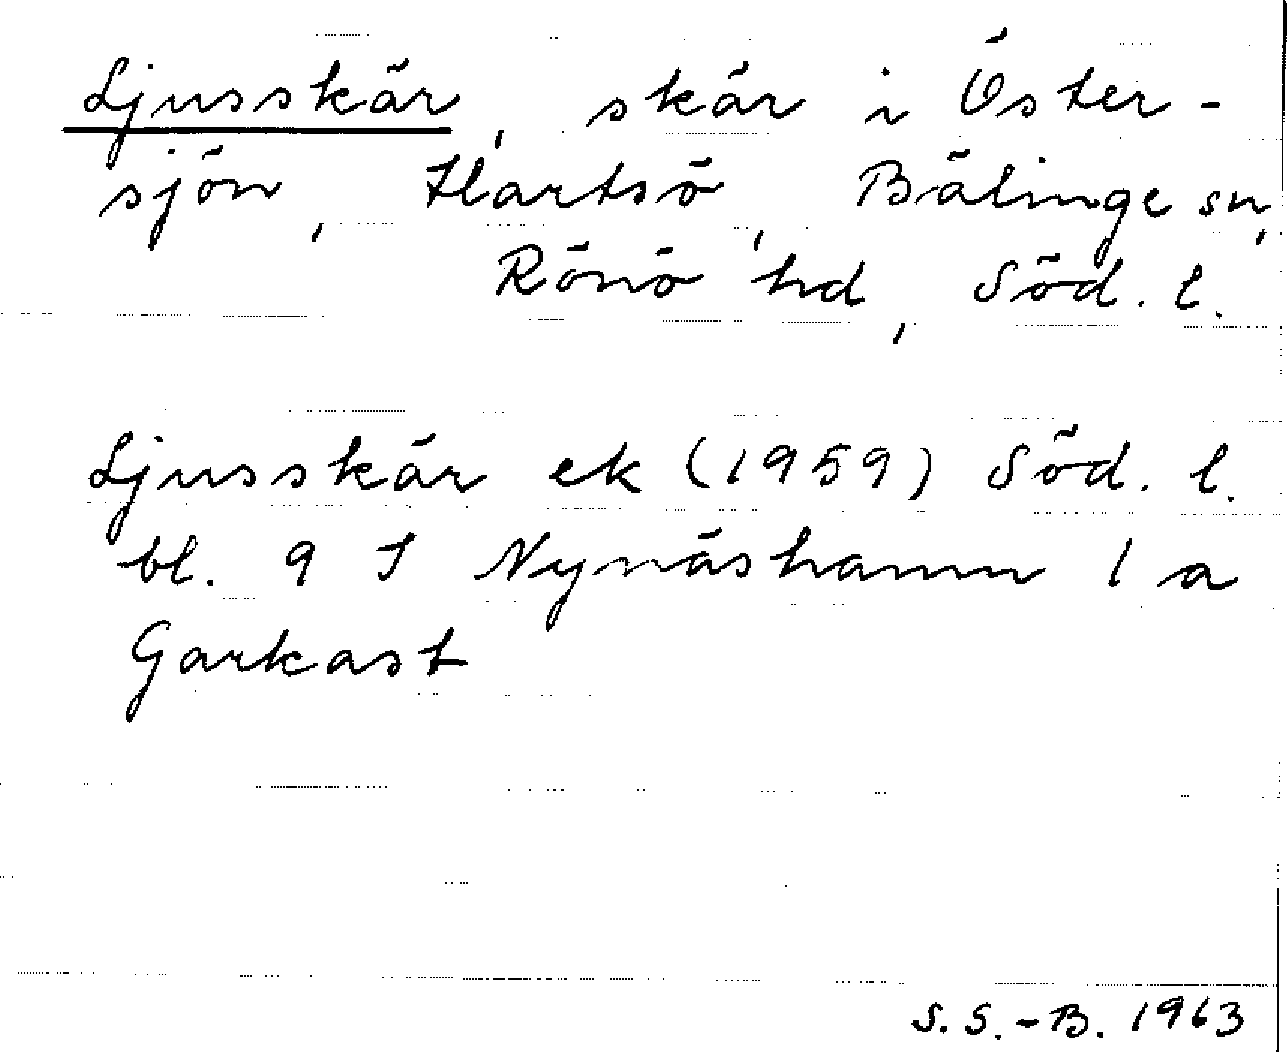 Ljusskär, skär i Öster-
sjön, Hartsö, Bälinge sn,
Rönö hd, Söd. l.
Ljusskär ek (1959) Söd. l.
bl. 9 I Nynäshamn 1 a
Garkast
S. S.-B. 1963